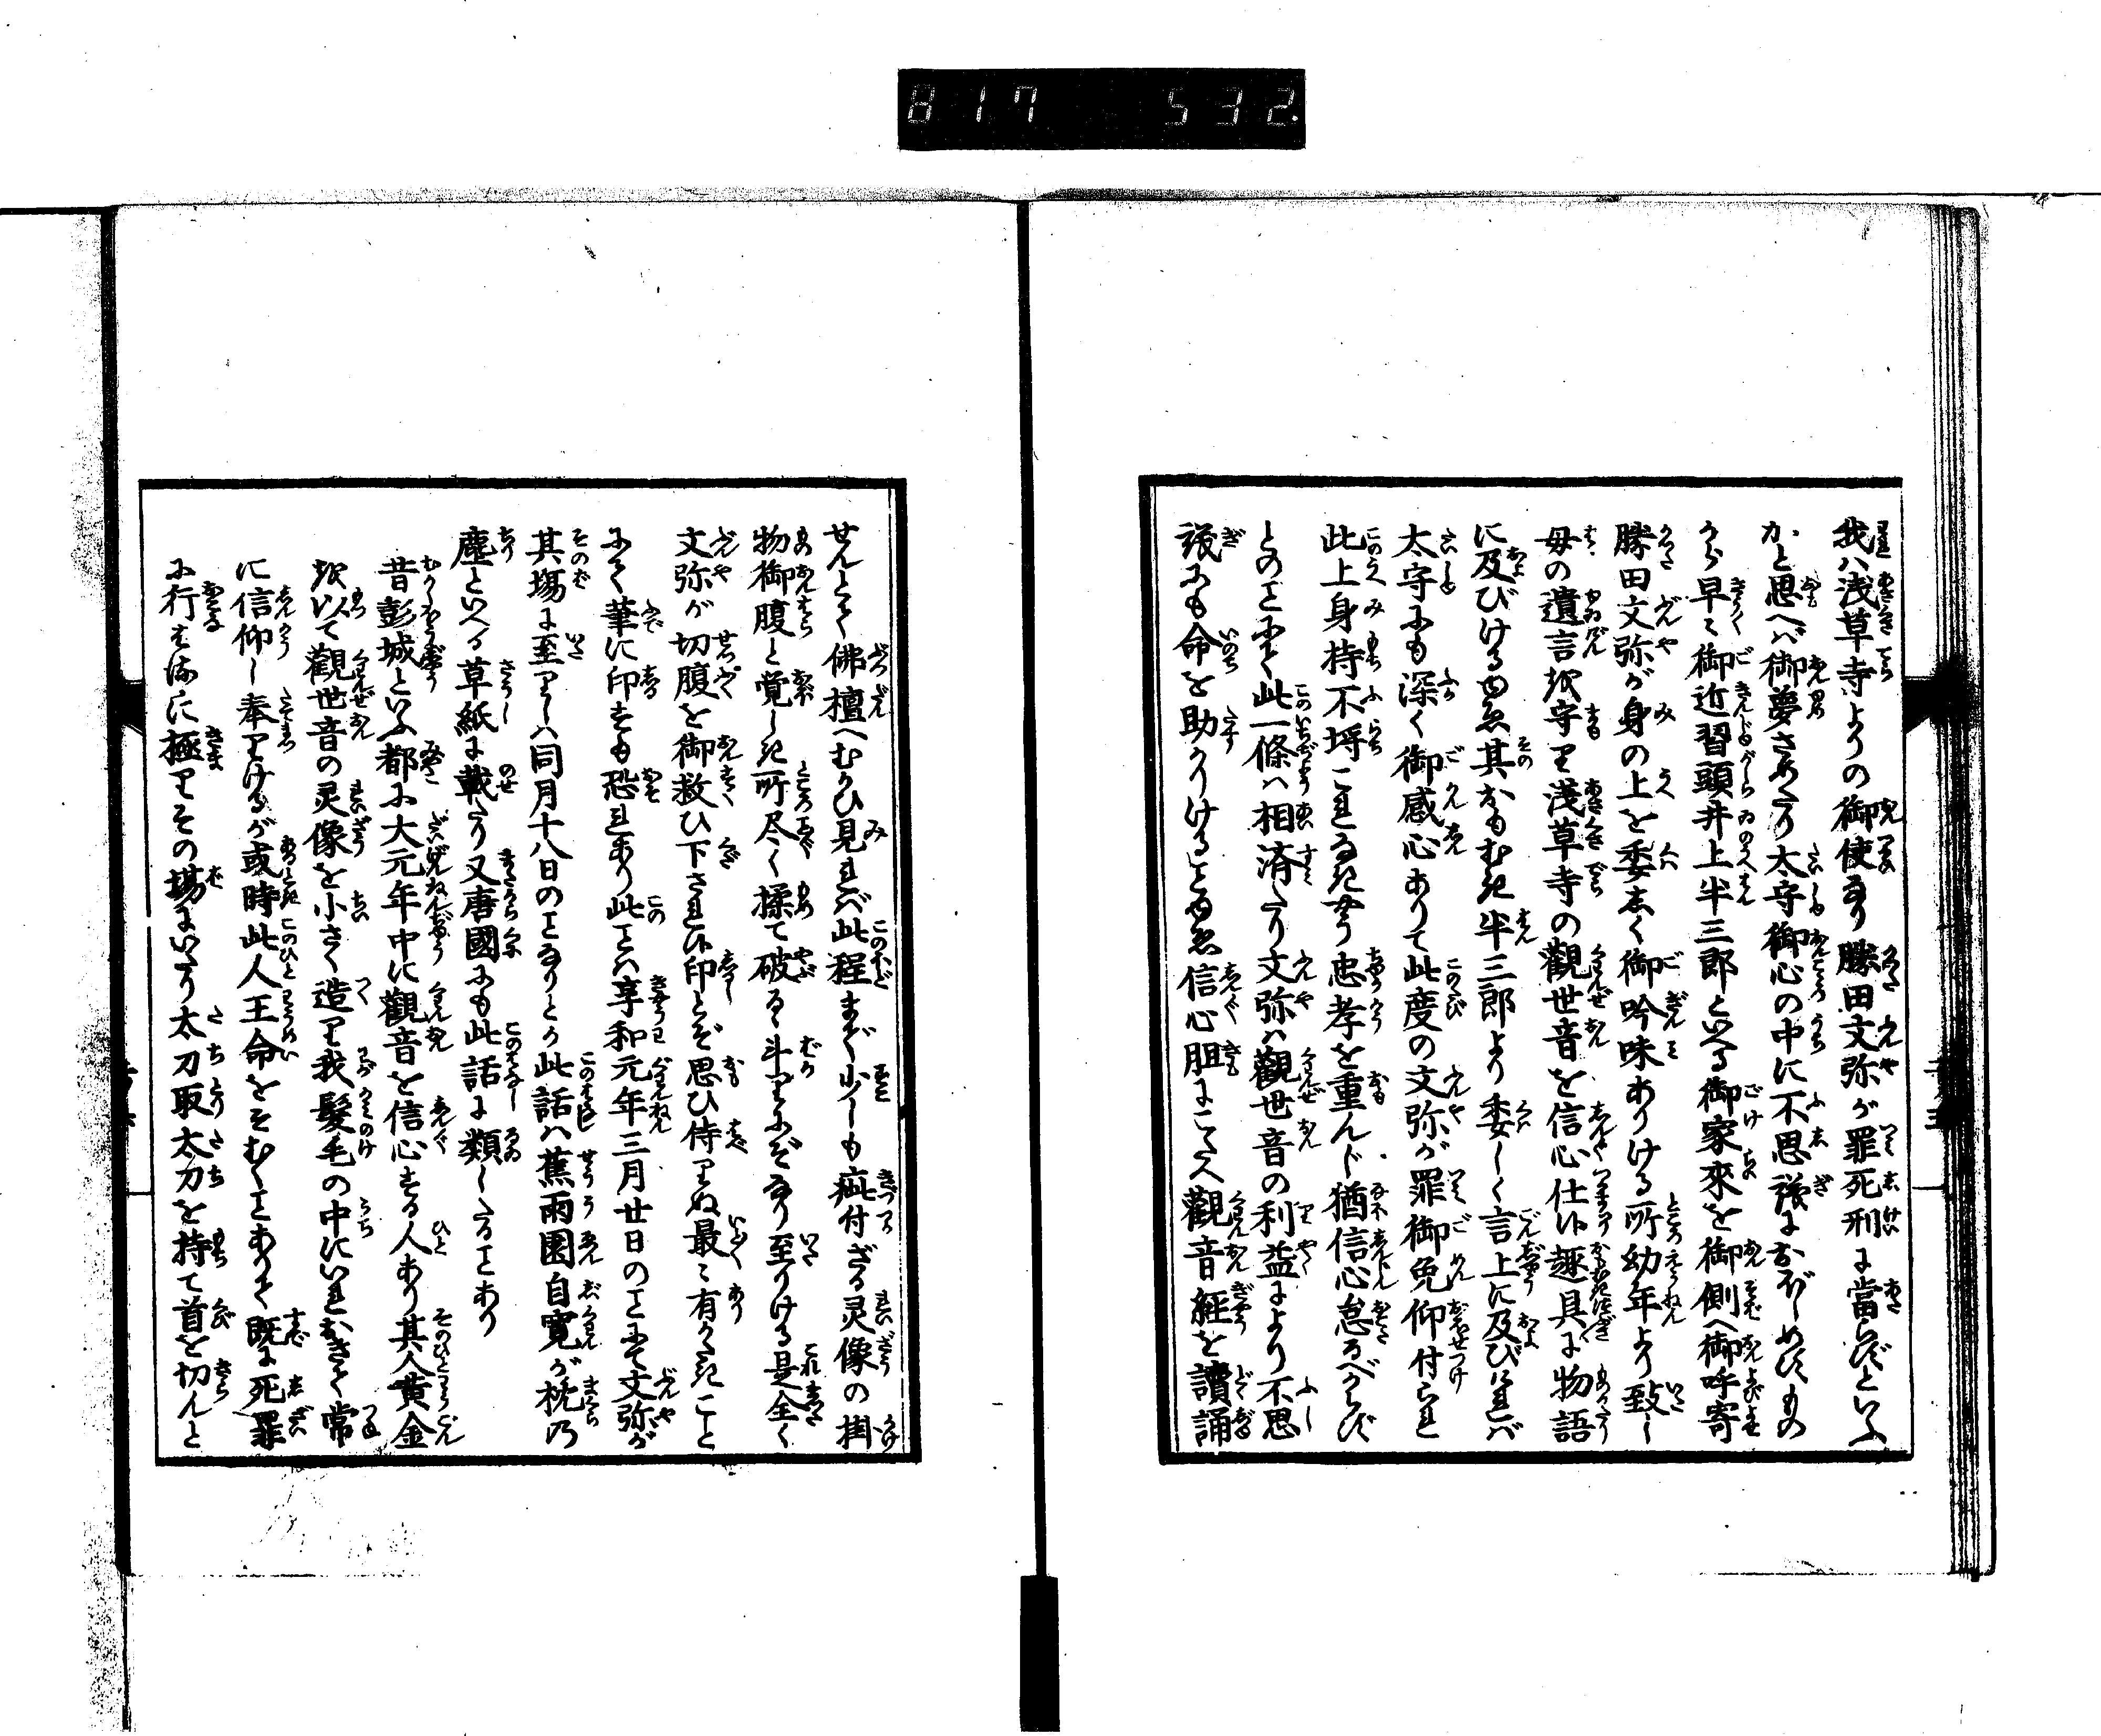 817 532.
我ハ浅草寺よりの御使なり勝田文弥が罪死刑に當らずといふ
かと思へば御夢さめたり太守御心の中に不思議におぼしめすもの
から早々御近習頭井上半三郎といへる御家來を御側へ御呼寄
勝田文弥が身の上を委しく御吟味ありける所幼年より致し
毋の遺言を守り浅草寺の觀世音を信心仕候趣具に物語
に及びけるゆゑ其おもむき半三郎より委しく言上に及びければ
太守にも深く御感心ありて此度の文弥が罪御免仰付られ
此上身持不埒これなきやう忠孝を重んじ猶信心怠るべからず
とのことにて此一條ハ相済たり文弥ハ觀世音の利益により不思
議にも命を助かりけることゆゑ信心胆にこたへ觀音経を讀誦
せんとて佛檀へむかひ見れバ此程まで少しも疵付ざる灵像の掛
物御腹と覚しき所尽く揉て破るゝ斗りにぞなり至りける是全く
文弥が切腹を御救ひ下され候印とぞ思ひ侍りぬ最ゝ有がたきこと
にて筆に印すも恐れあり此ことハ享和元年三月廿日のことにて文弥が
其場に至りしハ同月十八日のことなりとか此話ハ蕉雨園自寛が枕乃
塵といへる草紙に載たり又唐國にも此話に類したることあり
昔彭城といふ都に大元年中に觀音を信心する人あり其人黄金
を以て觀世音の灵像を小さく造り我髪毛の中にいれおきて常
に信仰し奉りけるが或時此人王命をそむくことありて既に死罪
に行はるに極りその場にいたり太刀取太刀を持て首を切んと